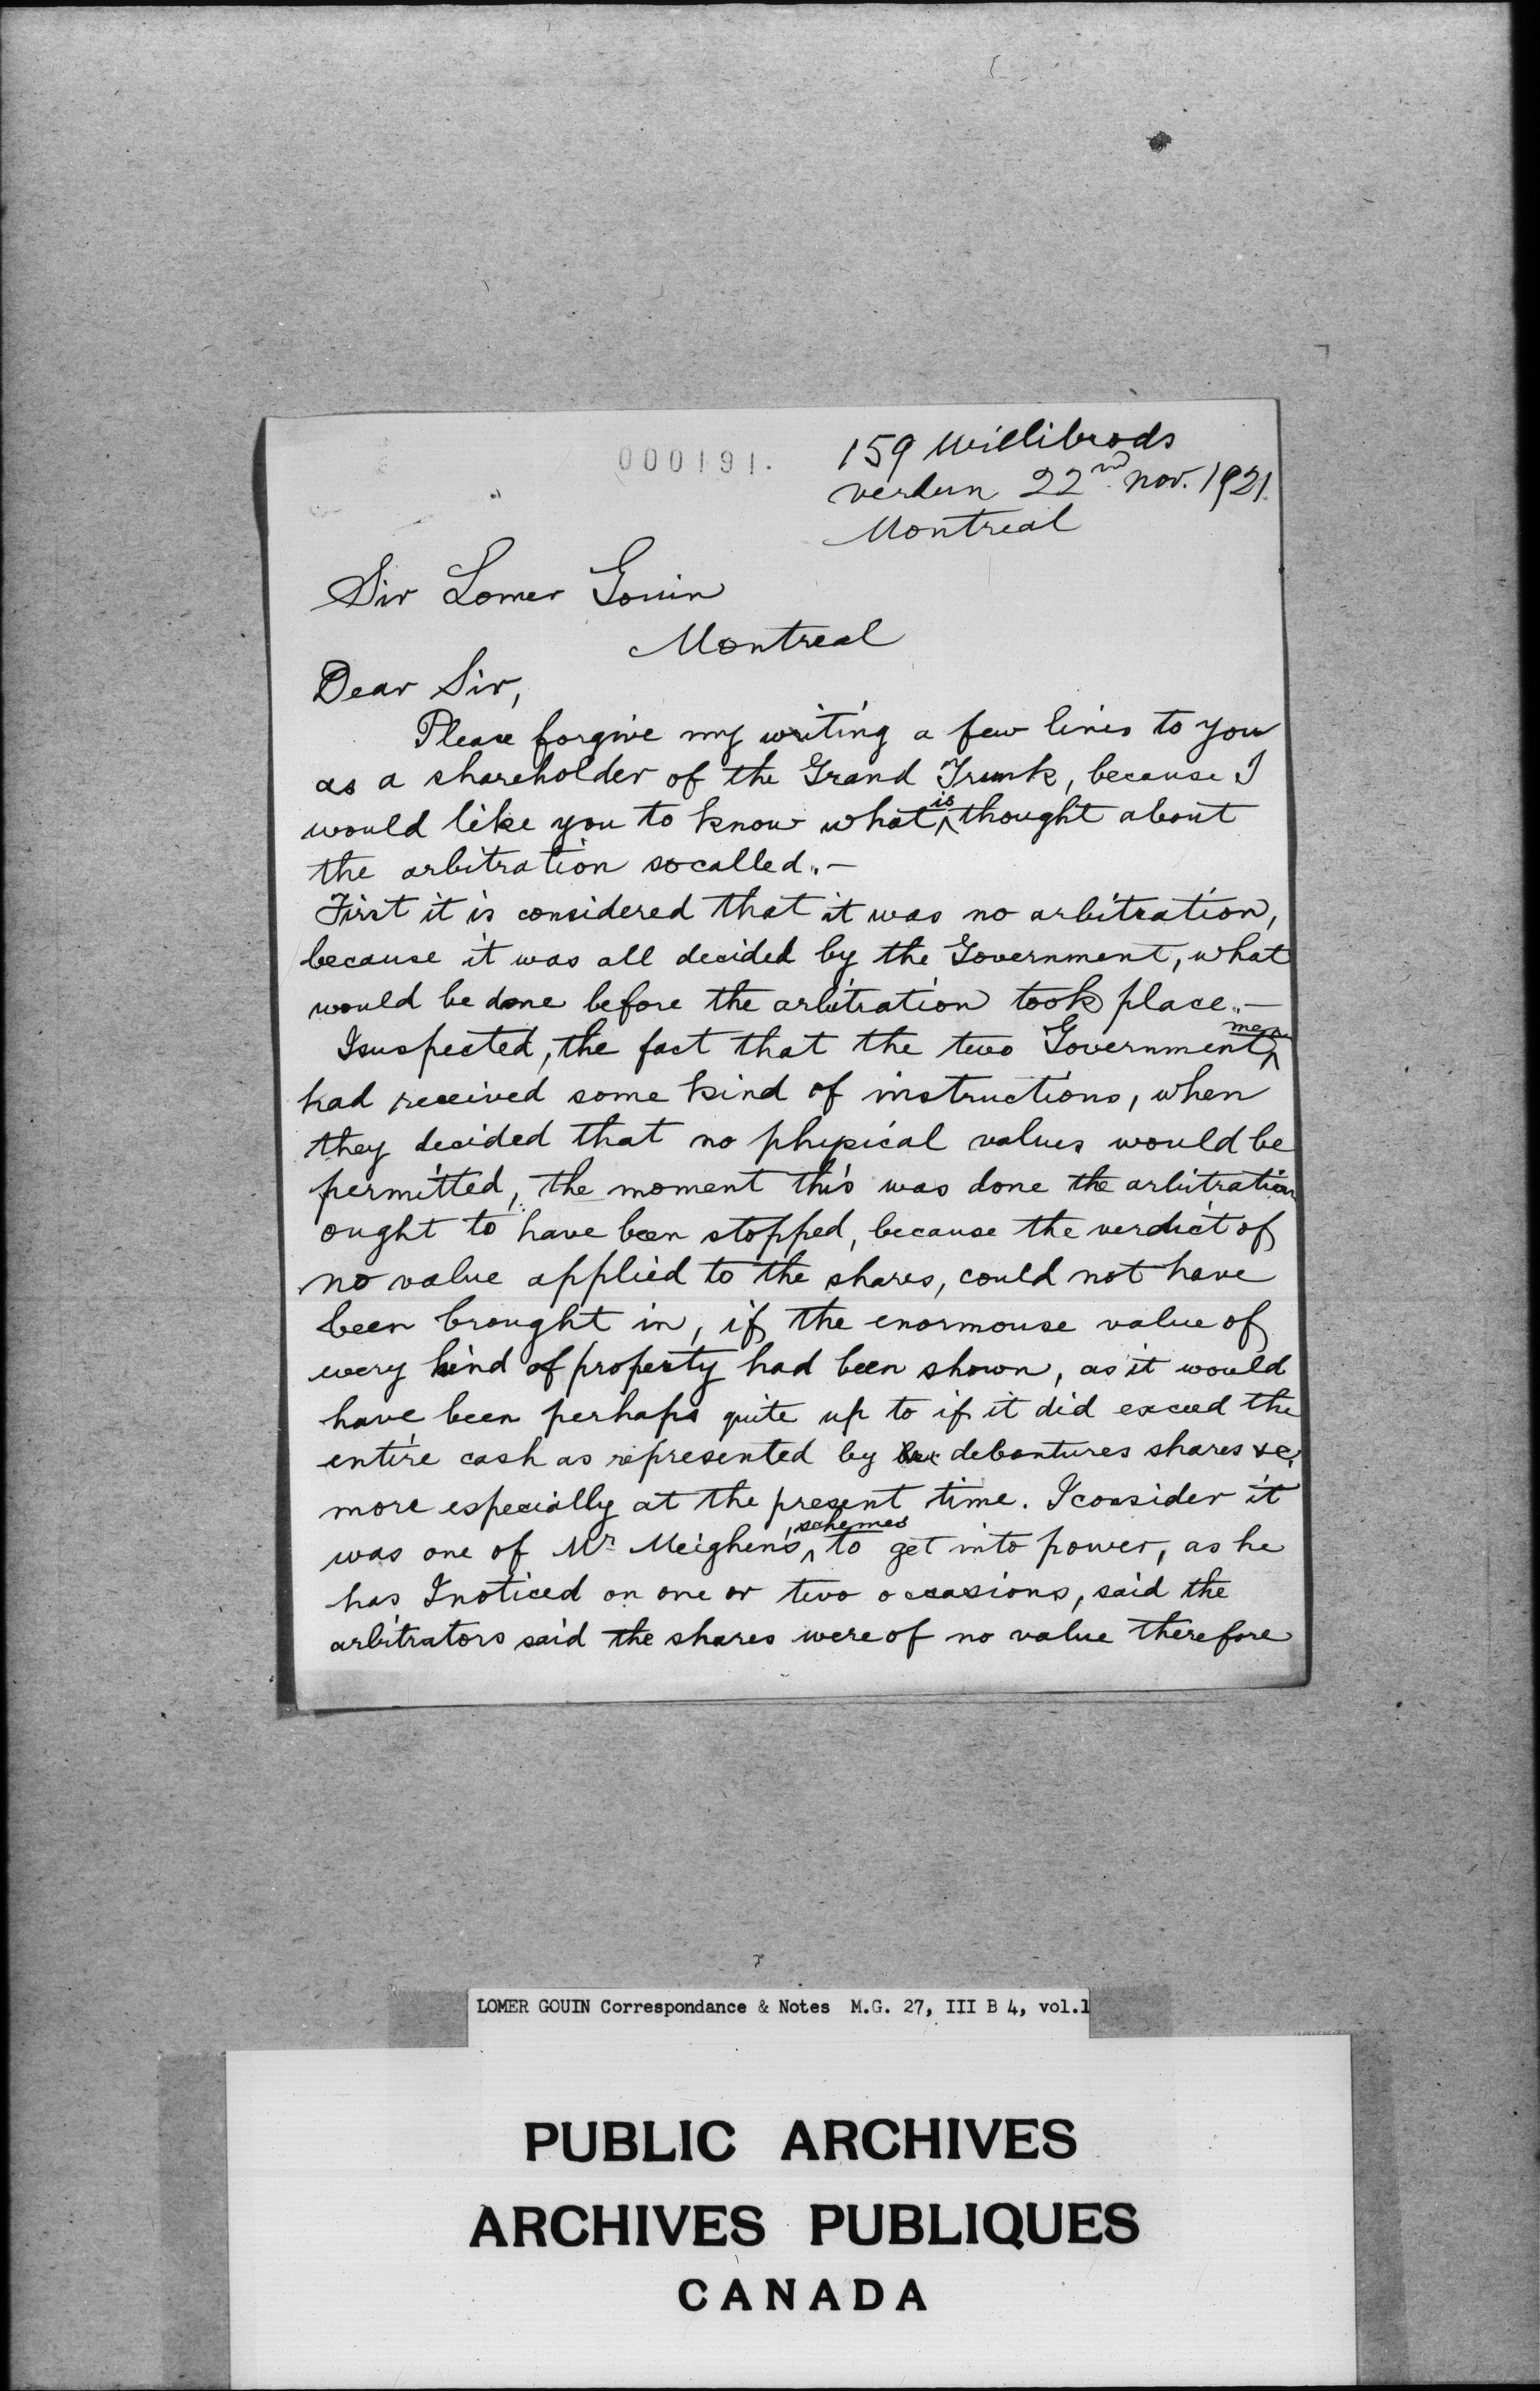 000191.
159 Willibrods
verdun 22nd nov. 1921.
Montreal
Sir Lomer Gouin
Montreal
Dear Sir,
Please forgive my writing a few lines to you
as a shareholder of the Grand Trunk, because I
would like you to know what is thought about
the arbitration socalled.—
First it is considered that it was no arbitration,
because it was all decided by the Government, what
would be done before the arbitration took place.—
I suspected, the fact that the two Government men
had received some kind of instructions, when
they decided that no physical values would be
permitted, the moment this was done the arbitration
ought to have been stopped, because the verdict of
no value applied to the shares, could not have
been brought in, if the enormouse value of
every kind of property had been shown, as it would
have been perhaps quite up to if it did exceed the
entire cash as represented by debentures shares &c.
more especially at the present time. I consider it
was one of Mr Meighen's, schemes to get into power, as he
has I noticed on one or two occasions, said the
arbitrators said the shares were of no value therefore
LOMER GOUIN Correspondance & Notes M.G. 27, III B 4, vol.1
PUBLIC ARCHIVES
ARCHIVES PUBLIQUES
CANADA